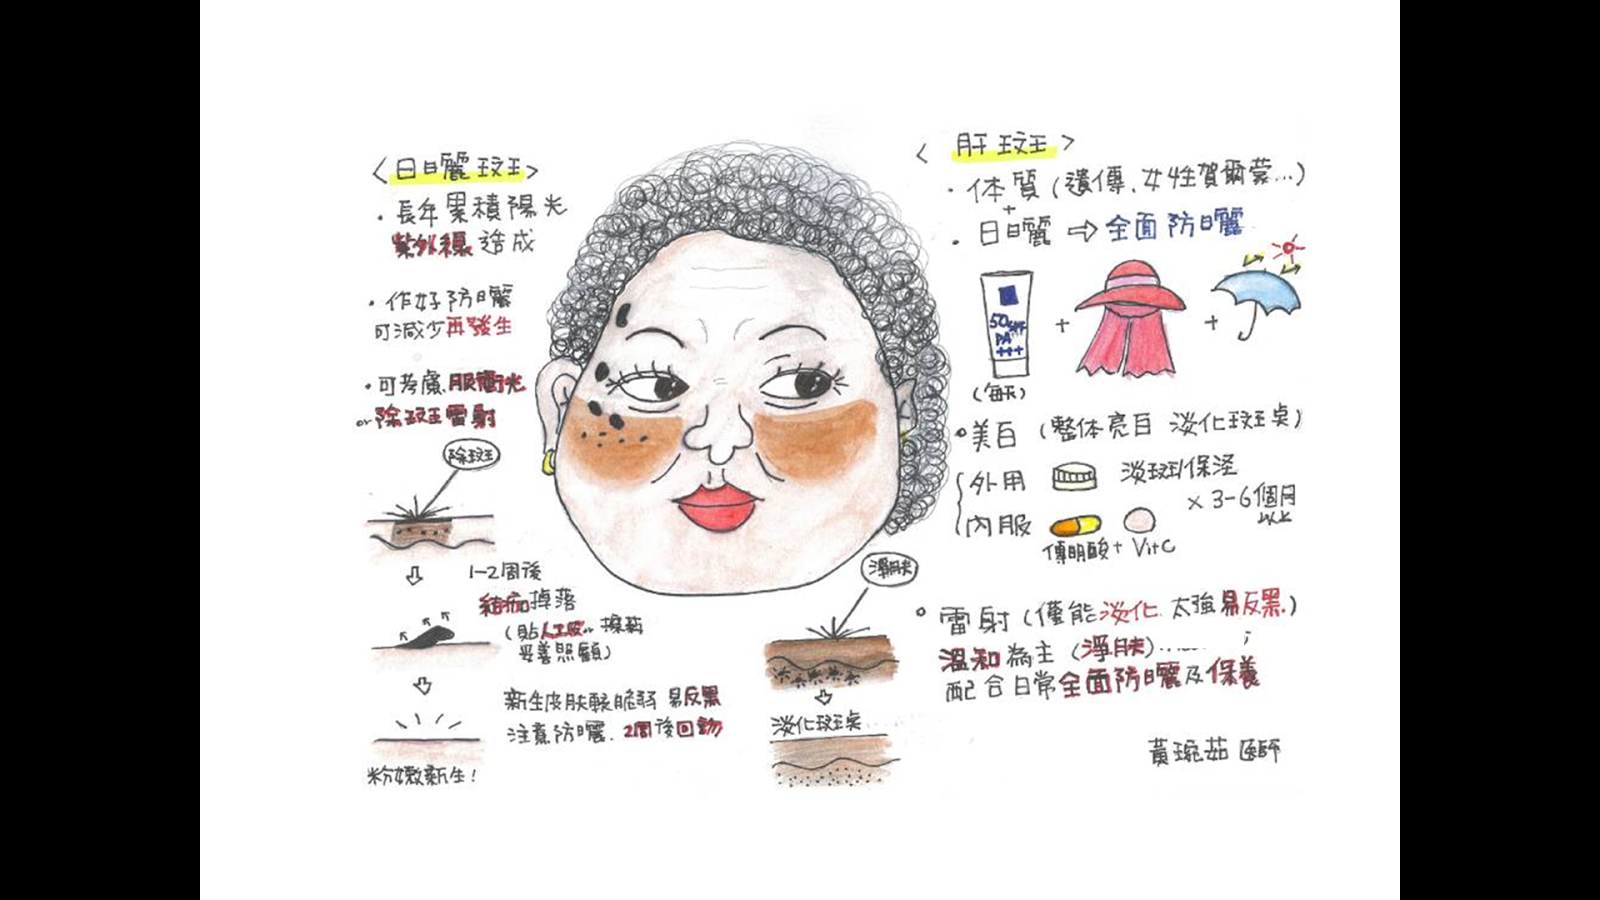 <日曬斑>
• 長年累積陽光
紫外線造成
• 作好防曬
可減少再發生
• 可考慮服衝光
or 除斑雷射
除斑
1-2周後
結痂掉落
(貼人工皮or擦藥
妥善照顧)
新生皮膚較脆弱 易反黑
注意防曬. 2周後回診
粉嫩新生!
<肝斑>
• 体質(遺傳、女性賀爾蒙...)
+
• 日曬 ⇨ 全面防曬
50 SPF
PA
+++
+
+
(每天)
• 美白 (整体亮白 淡化斑点)
外用
淡斑/保溼
x 3-6個月
以上
內服
傳明酸 + VitC
淨膚
淡化斑点
• 雷射(僅能淡化. 太強易反黑.)
溫和為主(淨膚)......
配合日常全面防曬及保養
黃琬茹 醫師